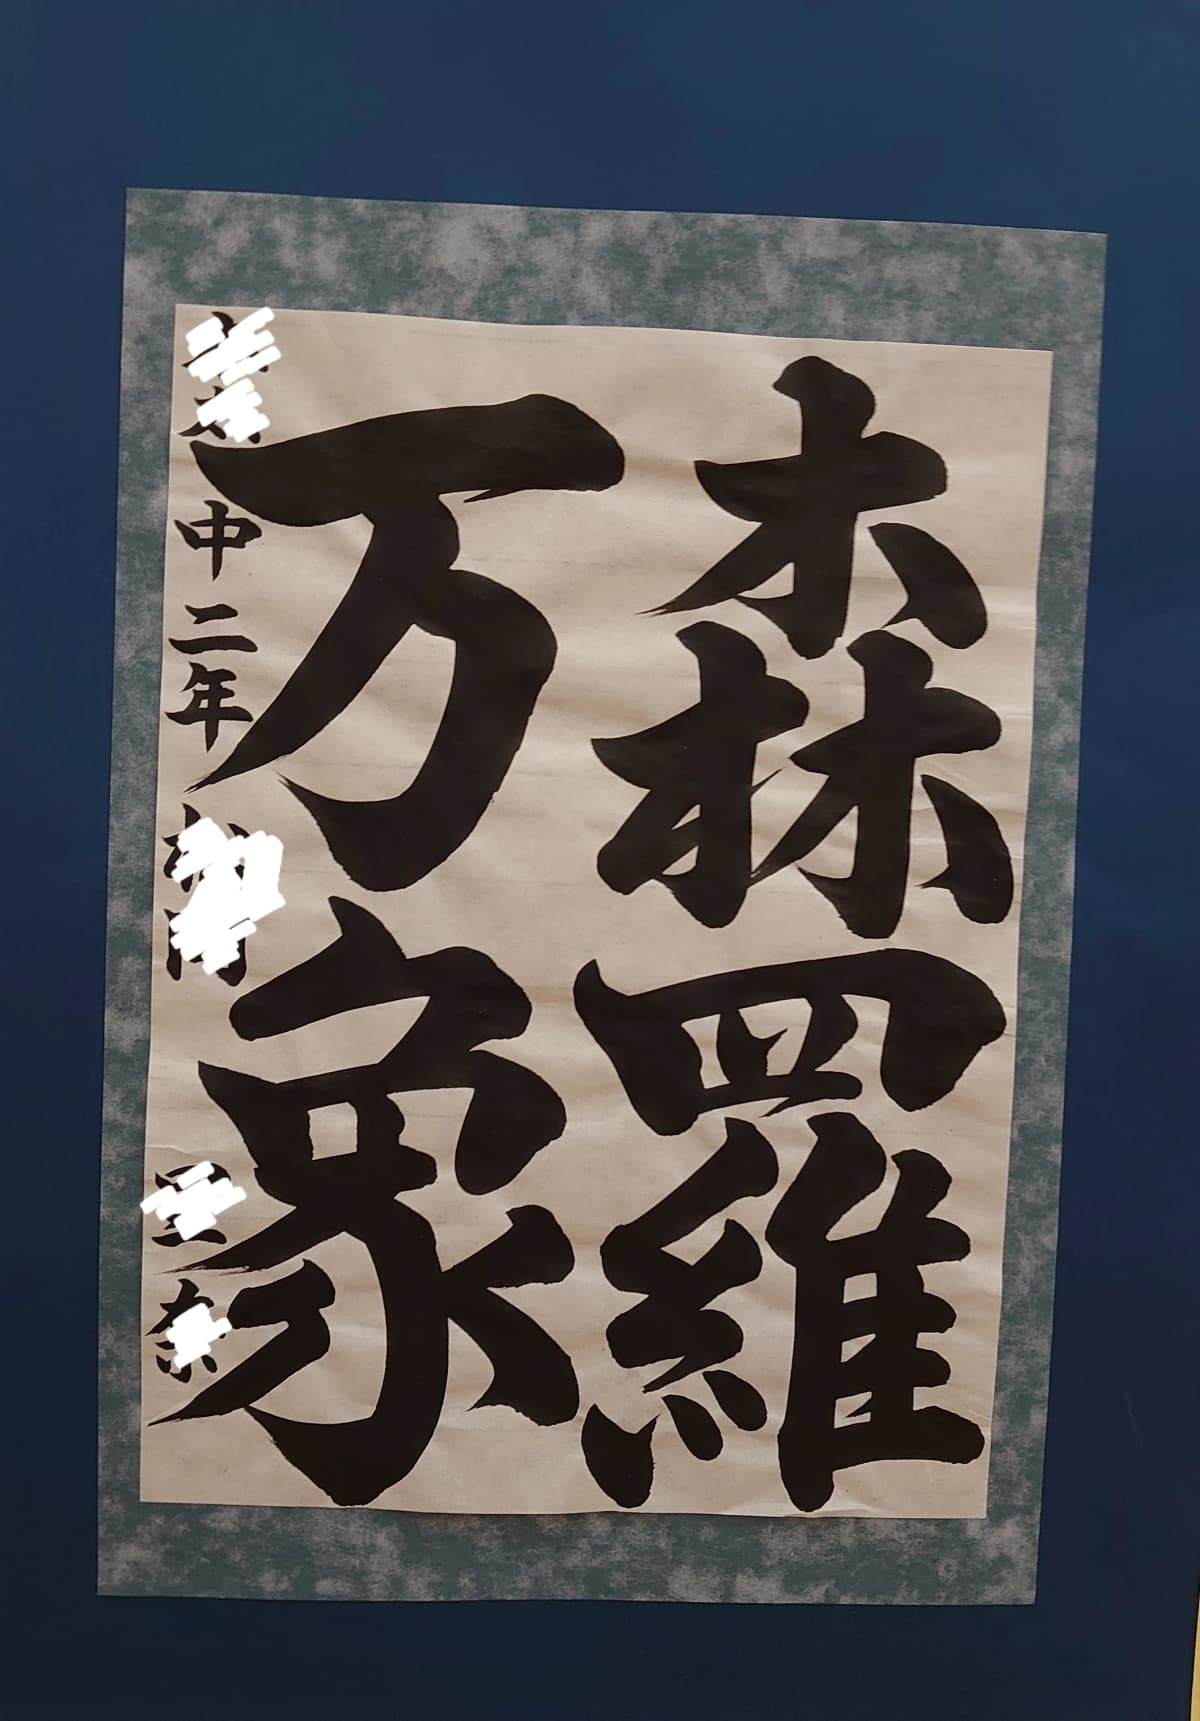 森羅
万象
中二年